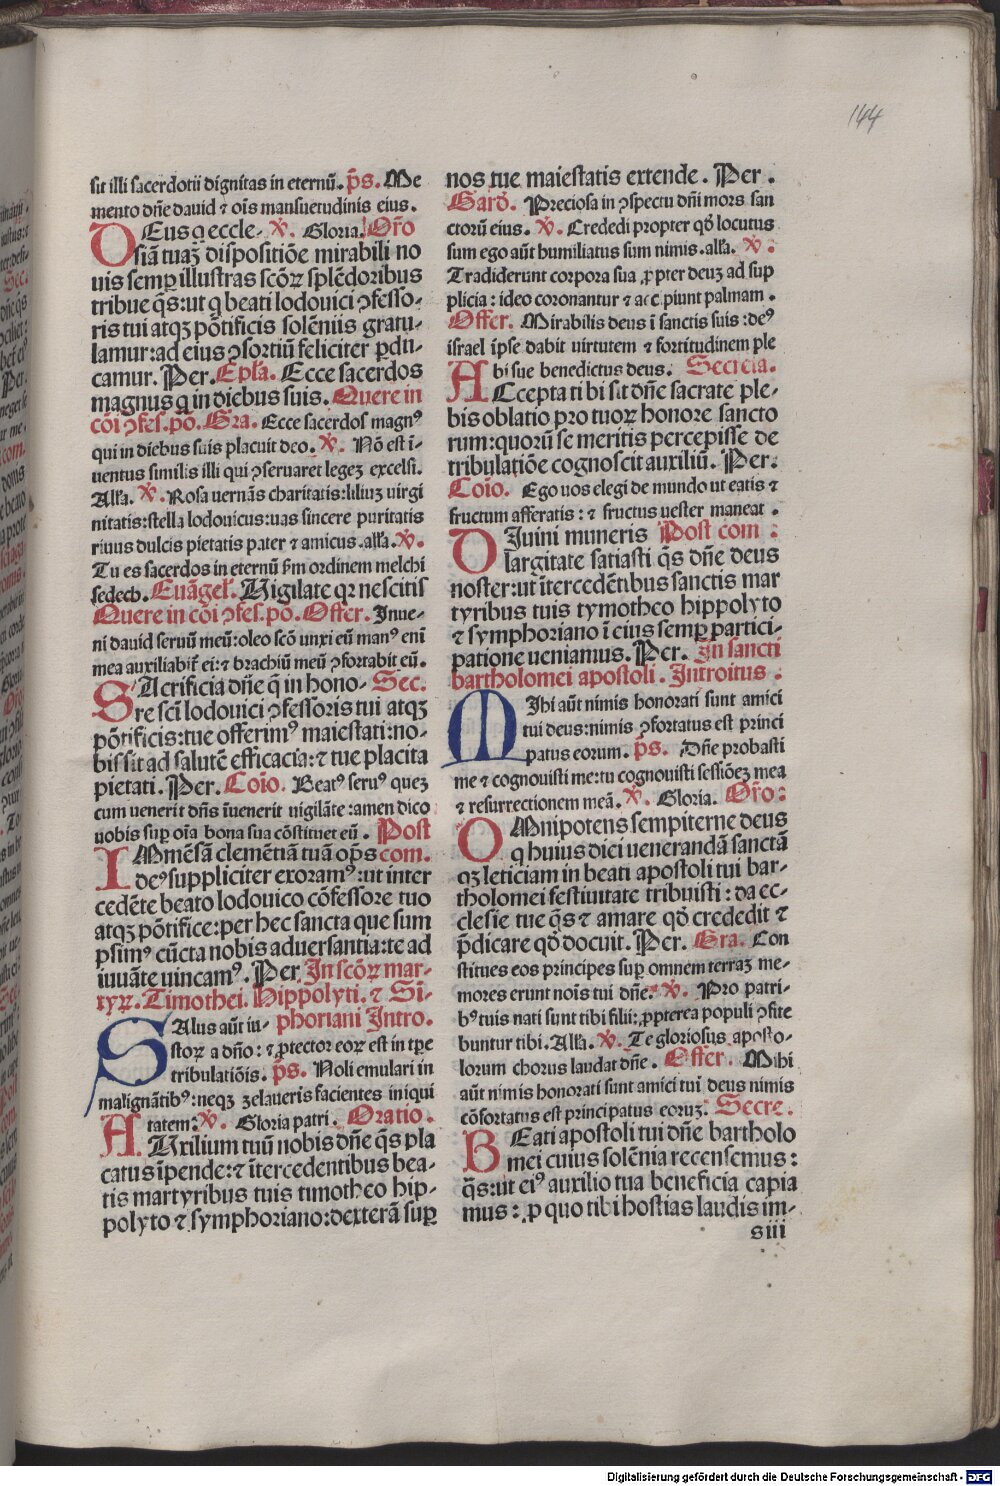 144
sit illi sacerdotii dignitas in eternū. p̄s. Me
mento dn̄e dauid ⁊ oīs mansuetudinis eius.
DEus q eccle- ℣. Gloria. Or̄o
siā tuaꝫ dispositiōe mirabili no
uis semꝑ illustras scōꝝ splēdoribus
tribue q̄s: ut q beati lodouici ꝯfesso-
ris tui atqꝫ pōtificis solēniis gratu-
lamur: ad eius ꝯsortiū feliciter ꝑdu-
camur. Per. Epl̄a. Ecce sacerdos
magnus q in diebus suis. Quere in
cōi ꝯfes. po. Gra. Ecce sacerdos magnꝰ
qui in diebus suis placuit deo. ℣. Nō est ī-
uentus similis illi qui ꝯseruaret legeꝫ excelsi.
Alla. ℣. Rosa uernās charitatis: liliuꝫ uirgi
nitatis: stella lodouicus: uas sincere puritatis
riuus dulcis pietatis pater ⁊ amicus. alla. ℣.
Tu es sacerdos in eternū ẜm ordinem melchi
sedech. Euāgel'. Uigilate qꝛ nescitis
Quere in cōi ꝯfes. po. Offer. Inue-
ni dauid seruū meū: oleo scō unxi eū manꝰ enī
mea auxiliabit̄ ei: ⁊ brachiū meū ꝯfortabit eū.
SAcrificia dn̄e q̄ in hono- Sec.
re scī lodouici ꝯfessoris tui atqꝫ
pōtificis: tue offerimꝰ maiestati: no-
bis sit ad salutē efficacia: ⁊ tue placita
pietati. Per. Coīo. Beatꝰ seruꝰ queꝫ
cum uenerit dn̄s īuenerit uigilāte: amen dico
uobis suꝑ oīa bona sua cōstituet eū. Post
IMmēsā clemētiā tuā op̄s com.
deꝰ suppliciter exoramꝰ: ut inter
cedēte beato lodouico cōfessore tuo
atqꝫ pōtifice: per hec sancta que sum
psimꝰ cūcta nobis aduersantia: te ad
iuuāte uincamꝰ. Per. In scōꝝ mar-
tyꝝ. Timothei. Hippolyti. ⁊ Si-
SAlus aūt iu- phoriani Intro.
stoꝝ a dn̄o: ⁊ ꝓtector eoꝝ est in tꝑe
tribulatiōis. p̄s. Noli emulari in
malignātibꝰ: neqꝫ zelaueris facientes iniqui
tatem: ℣. Gloria patri. Oratio.
AUxilium tuū nobis dn̄e q̄s pla
catus īpende: ⁊ ītercedentibus bea-
tis martyribus tuis timotheo hip-
polyto ⁊ symphoriano: dexterā suꝑ
nos tue maiestatis extende. Per.
Gard̄. Preciosa in ꝯspectu dn̄i mors san
ctorū eius. ℣. Crededi propter qd̄ locutus
sum ego aūt humiliatus sum nimis. alla. ℣:
Tradiderunt corpora sua ꝓpter deuꝫ ad sup
plicia: ideo coronantur ⁊ accipiunt palmam.
Offer. Mirabilis deus ī sanctis suis: deꝰ
israel ipse dabit uirtutem ⁊ fortitudinem ple
bi sue benedictus deus. Secreta.
ACcepta tibi sit dn̄e sacrate ple-
bis oblatio pro tuoꝝ honore sancto
rum: quorū se meritis percepisse de
tribulatiōe cognoscit auxiliū. Per.
Coīo. Ego uos elegi de mundo ut eatis ⁊
fructum afferatis: ⁊ fructus uester maneat.
DIuini muneris Post com:
largitate satiasti q̄s dn̄e deus
noster: ut ītercedētibus sanctis mar
tyribus tuis tymotheo hippolyto
⁊ symphoriano ī eius semꝑ partici-
patione ueniamus. Per. In sancti
bartholomei apostoli. Introitus.
MIhi aūt nimis honorati sunt amici
tui deus: nimis ꝯfortatus est princi
patus eorum. p̄s. Dn̄e probasti
me ⁊ cognouisti me: tu cognouisti sessiōeꝫ mea
⁊ resurrectionem meā. ℣. Gloria. Or̄o:
OMnipotens sempiterne deus
q huius diei uenerandā sanctā
qꝫ leticiam in beati apostoli tui bar-
tholomei festiuitate tribuisti: da ec-
clesie tue q̄s ⁊ amare qd̄ crededit ⁊
p̄dicare qd̄ docuit. Per. Gra. Con
stitues eos principes suꝑ omnem terraꝫ me-
mores erunt noīs tui dn̄e. ℣. Pro patri-
bꝰ tuis nati sunt tibi filii: ꝓpterea populi ꝯfite
buntur tibi. Alla. ℣. Te gloriosus aposto-
lorum chorus laudat dn̄e. Offer. Mihi
aūt nimis honorati sunt amici tui deus nimis
cōfortatus est principatus eoruꝫ. Secre.
BEati apostoli tui dn̄e bartholo
mei cuius solēnia recensemus:
q̄s: ut eiꝰ auxilio tua beneficia capia
mus: ꝓ quo tibi hostias laudis im-
s iii
Digitalisierung gefördert durch die Deutsche Forschungsgemeinschaft - DFG